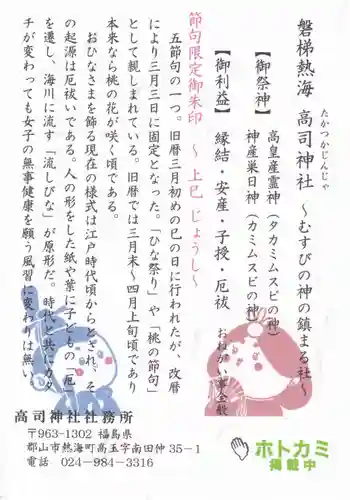 磐梯熱海 高司神社 ～むすびの神の鎮まる社～
たかつかじんじゃ
【御祭神】 高皇産霊神（タカミムスビの神）
神産巣日神（カミムスビの神）
【御利益】 縁結・安産・子授・厄祓
おねがい事全般
節句限定御朱印 ～ 上巳 じょうし～
五節句の一つ。旧暦三月初めの巳の日に行われたが、改暦
により三月三日に固定となった。「ひな祭り」や「桃の節句」
として親しまれている。旧暦では三月末～四月上旬頃であり
本来なら桃の花が咲く頃である。
おひなさまを飾る現在の様式は江戸時代頃からとされ、そ
の起源は厄祓いである。人の形をした紙や葉に子どもの「厄」
を遷し、海川に流す「流しびな」が原形だ。時代と共にカタ
チが変わっても女子の無事健康を願う風習に変わりは無い。
高司神社社務所
〒963-1302 福島県
郡山市熱海町高玉字南田仲 35－1
電話 024-984-3316
ホトカミ
掲載中